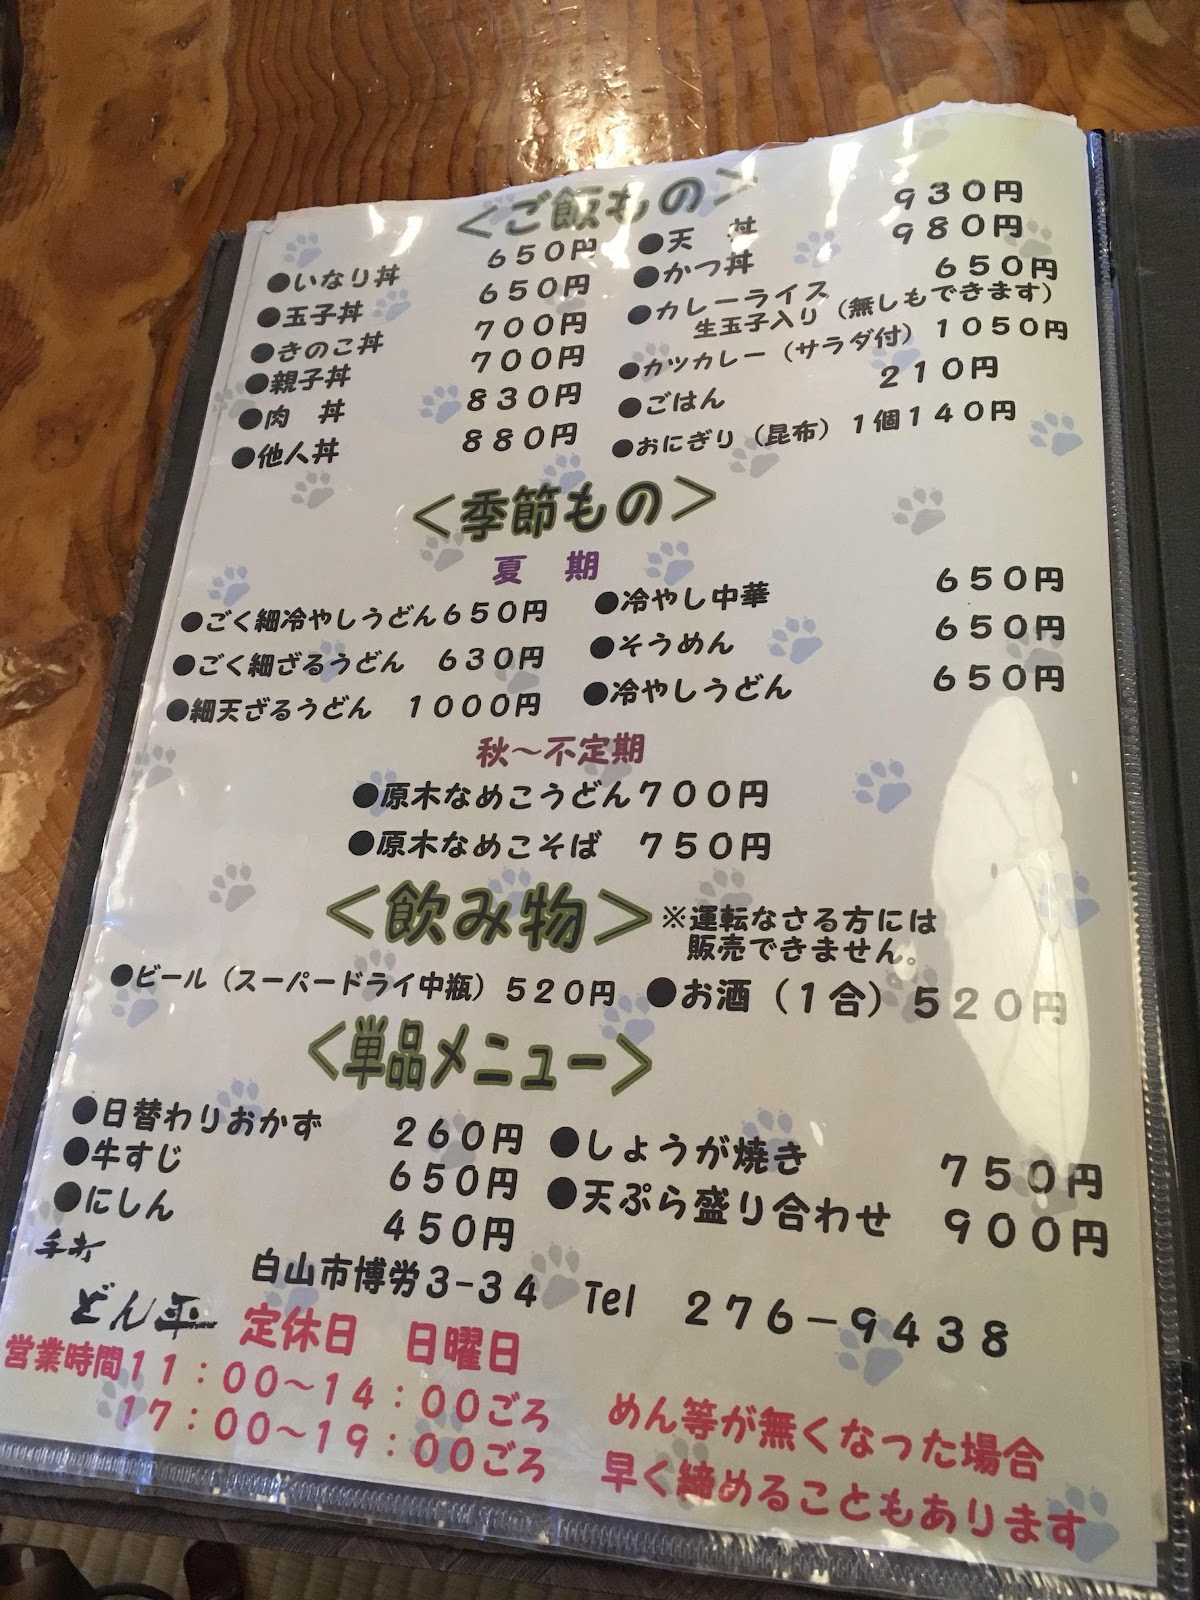 ＜ご飯もの＞
●いなり丼 ６５０円
●玉子丼 ６５０円
●きのこ丼 ７００円
●親子丼 ７００円
●肉　丼 ８３０円
●他人丼 ８８０円
●天　丼 ９３０円
●かつ丼 ９８０円
●カレーライス ６５０円
生玉子入り（無しもできます）
●カツカレー（サラダ付） １０５０円
●ごはん ２１０円
●おにぎり（昆布）１個１４０円
＜季節もの＞
夏　期
●ごく細冷やしうどん６５０円
●ごく細ざるうどん　６３０円
●細天ざるうどん　１０００円
●冷やし中華 ６５０円
●そうめん ６５０円
●冷やしうどん ６５０円
秋～不定期
●原木なめこうどん７００円
●原木なめこそば　７５０円
＜飲み物＞ ※運転なさる方には
販売できません。
●ビール（スーパードライ中瓶）５２０円 ●お酒（１合）５２０円
＜単品メニュー＞
●日替わりおかず ２６０円
●牛すじ ６５０円
●にしん ４５０円
●しょうが焼き ７５０円
●天ぷら盛り合わせ ９００円
手打
どん平
白山市博労３-３４　Tel　２７６－９４３８
定休日　日曜日
営業時間１１：００～１４：００ごろ
１７：００～１９：００ごろ
めん等が無くなった場合
早く締めることもあります